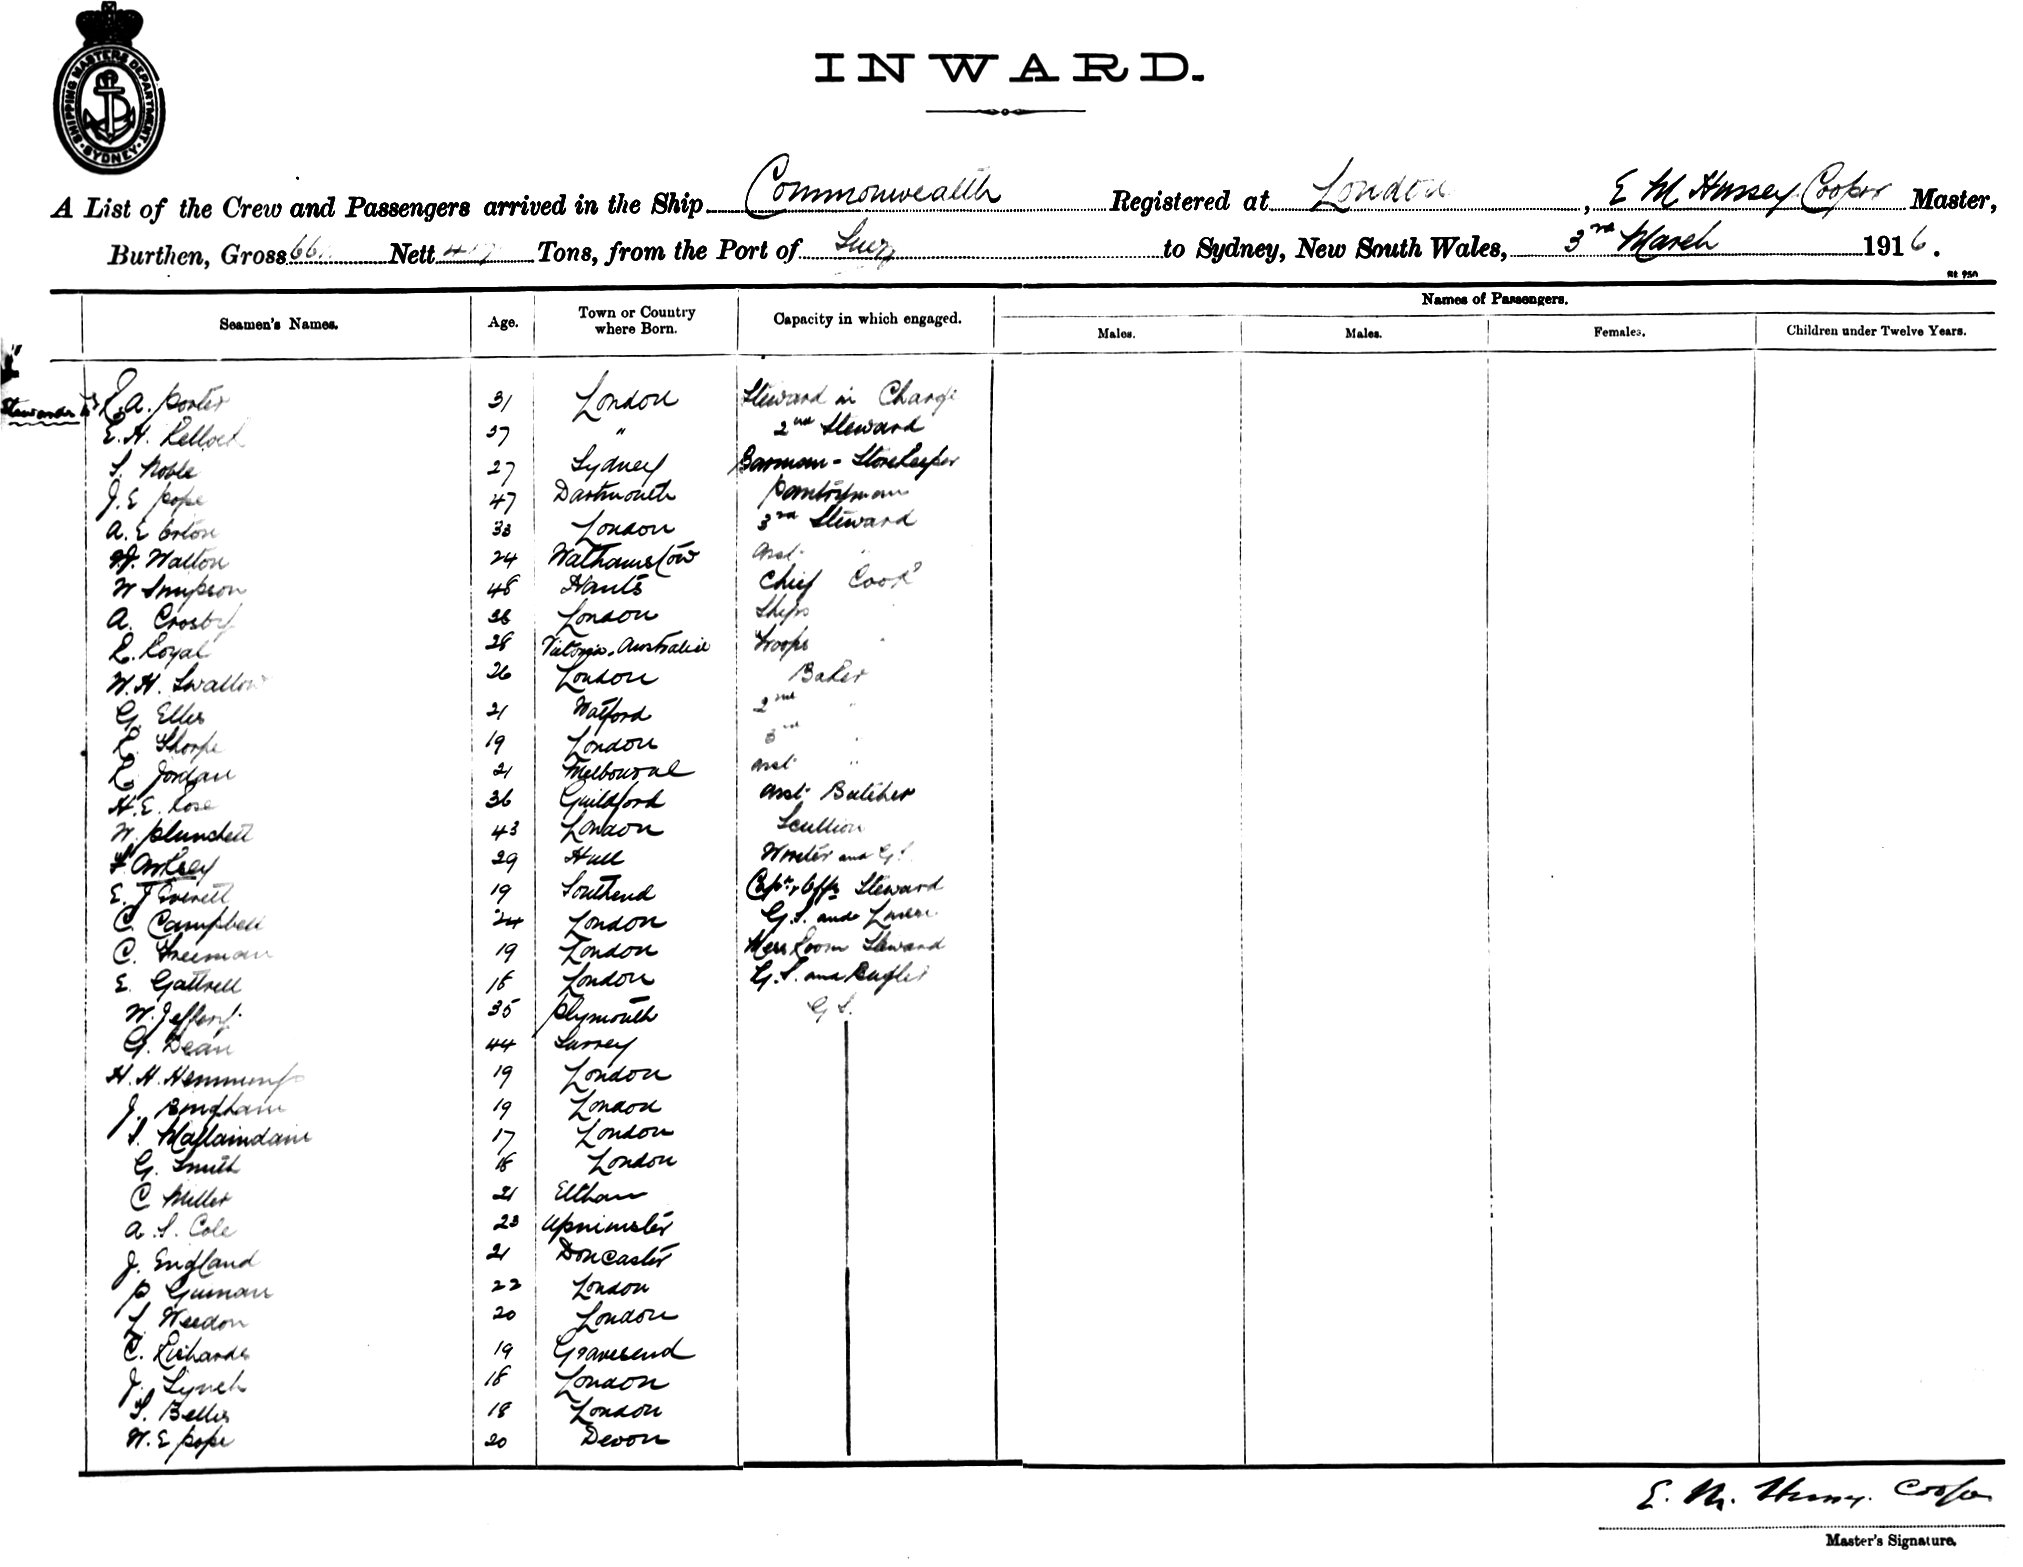 SHIPPING MASTERS DEPARTMENT SYDNEY
INWARD.
A List of the Crew and Passengers arrived in the Ship Commonwealth Registered at London, E M Hussey Cooper Master,
Burthen, Gross Nett Tons, from the Port of Suez to Sydney, New South Wales, 3rd March 1916.
Names of Passengers.
Seamen's Names. Age. Town or Country where Born. Capacity in which engaged. Males. Males. Females. Children under Twelve Years.
Stewards A. Porter 31 London Steward in Charge
E. H. 37 " 2nd Steward
S. Noble 27 Sydney Barman - Storekeeper
J. E Pope 47 Dartmouth Pantryman
A. E Orton 33 London 3rd Steward
Walton 24 Walthamstow Asst "
W Simpson 48 Hants Chief Cook
A. Crosby London Ships "
R. Royal 28 Victoria, Australia Troops "
W. H. Swallow 26 London Baker
G. Ellis 21 Watford 2nd "
R. Thorpe 19 London 3rd "
R. Jordan 21 Melbourne Asst "
H. E. Rose 36 Guildford Asst Butcher
W. Plunckett 43 London Scullion
F. 29 Hull and G.S.
E. J Everett 19 Southend Capt & Offs Steward
C. Campbell 24 London G. S. and Linen
C. Freeman 19 London Mess Room Steward
E. Gattrell 18 London G. S. and Bugler
W. Jeffery 35 Plymouth G S.
G. Dean 44 Surrey
H. H. Hemmings 19 London
J. Bingham 19 London
S. 17 London
G. Smith 18 London
C Miller 21 Eltham
A. S. Cole 23 Upminster
J. England 21 Doncaster
P Guinan 22 London
L. Weedon 20 London
C. Richards 19 Gravesend
J. Lynch 18 London
S. Bellis 18 London
W. E Pope 20 Devon
E. M. Hussey Cooper
Master's Signature.